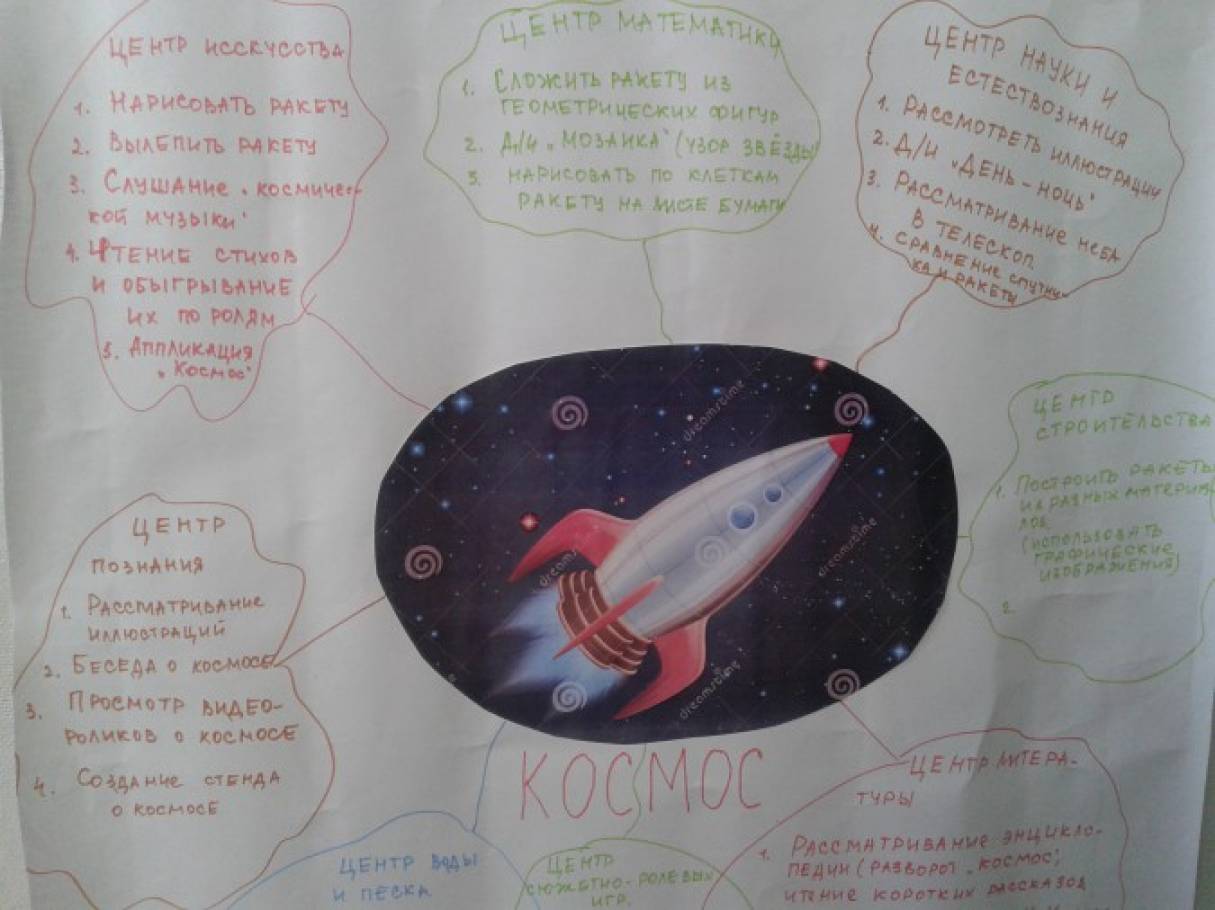 ЦЕНТР ИССКУССТВА
1. НАРИСОВАТЬ РАКЕТУ
2. ВЫЛЕПИТЬ РАКЕТУ
3. СЛУШАНИЕ „КОСМИЧЕС-
КОЙ МУЗЫКИ"
4. ЧТЕНИЕ СТИХОВ
И ОБЫГРЫВАНИЕ
ИХ ПО РОЛЯМ
5. АППЛИКАЦИЯ
„КОСМОС"
ЦЕНТР МАТЕМАТИКИ
1. СЛОЖИТЬ РАКЕТУ ИЗ
ГЕОМЕТРИЧЕСКИХ ФИГУР
2. Д/И „МОЗАИКА" (УЗОР ЗВЁЗДЫ)
3. НАРИСОВАТЬ ПО КЛЕТКАМ
РАКЕТУ НА ЛИСТЕ БУМАГИ
ЦЕНТР НАУКИ И
ЕСТЕСТВОЗНАНИЯ
1. РАССМОТРЕТЬ ИЛЛЮСТРАЦИИ
2. Д/И „ДЕНЬ - НОЧЬ"
3. РАССМАТРИВАНИЕ НЕБА
В ТЕЛЕСКОП
4. СРАВНЕНИЕ СПУТНИ-
КА И РАКЕТЫ
ЦЕНТР
СТРОИТЕЛЬСТВА
1. ПОСТРОИТЬ РАКЕТЫ
ИЗ РАЗНЫХ МАТЕРИА-
ЛОВ
(ИСПОЛЬЗОВАТЬ
ГРАФИЧЕСКИЕ
ИЗОБРАЖЕНИЯ)
2.
ЦЕНТР
ПОЗНАНИЯ
1. РАССМАТРИВАНИЕ
ИЛЛЮСТРАЦИЙ
2. БЕСЕДА О КОСМОСЕ
3. ПРОСМОТР ВИДЕО-
РОЛИКОВ О КОСМОСЕ
4. СОЗДАНИЕ СТЕНДА
О КОСМОСЕ
dreamstime
dreamstime
dreamstime
dreamstime
КОСМОС
ЦЕНТР ВОДЫ
И ПЕСКА
ЦЕНТР
СЮЖЕТНО-РОЛЕВЫХ
ИГР.
ЦЕНТР ЛИТЕРА-
ТУРЫ
1. РАССМАТРИВАНИЕ ЭНЦИКЛО-
ПЕДИИ (РАЗВОРОТ „КОСМОС",
ЧТЕНИЕ КОРОТКИХ РАССКАЗОВ